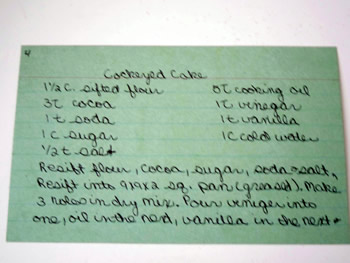 4
Cockeyed Cake
1 1/2 C. sifted flour 5T cooking oil
3T cocoa 1T vinegar
1 t soda 1t vanilla
1 C sugar 1C cold water
1/2 t salt
Resift flour, cocoa, sugar, soda & salt,
Resift into 9x9x2 sq. pan (greased). Make
3 holes in dry mix. Pour viniger into
one, oil in the next, vanilla in the next